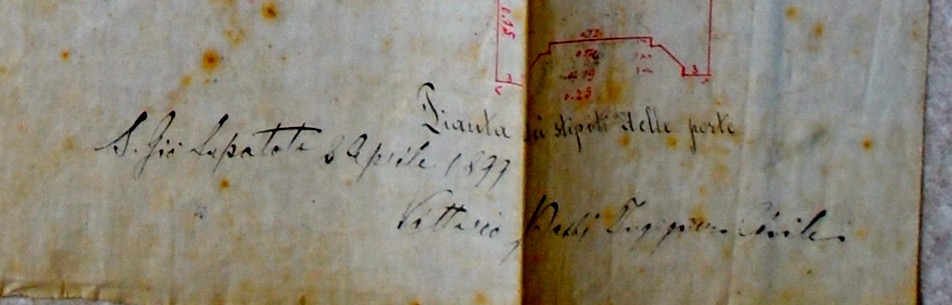 0.15
0.19
0.25
Pianta dei stipiti delle porte
S. Gio Lupatoto 8 Aprile 1899
Vittorio Ingegnere Civile